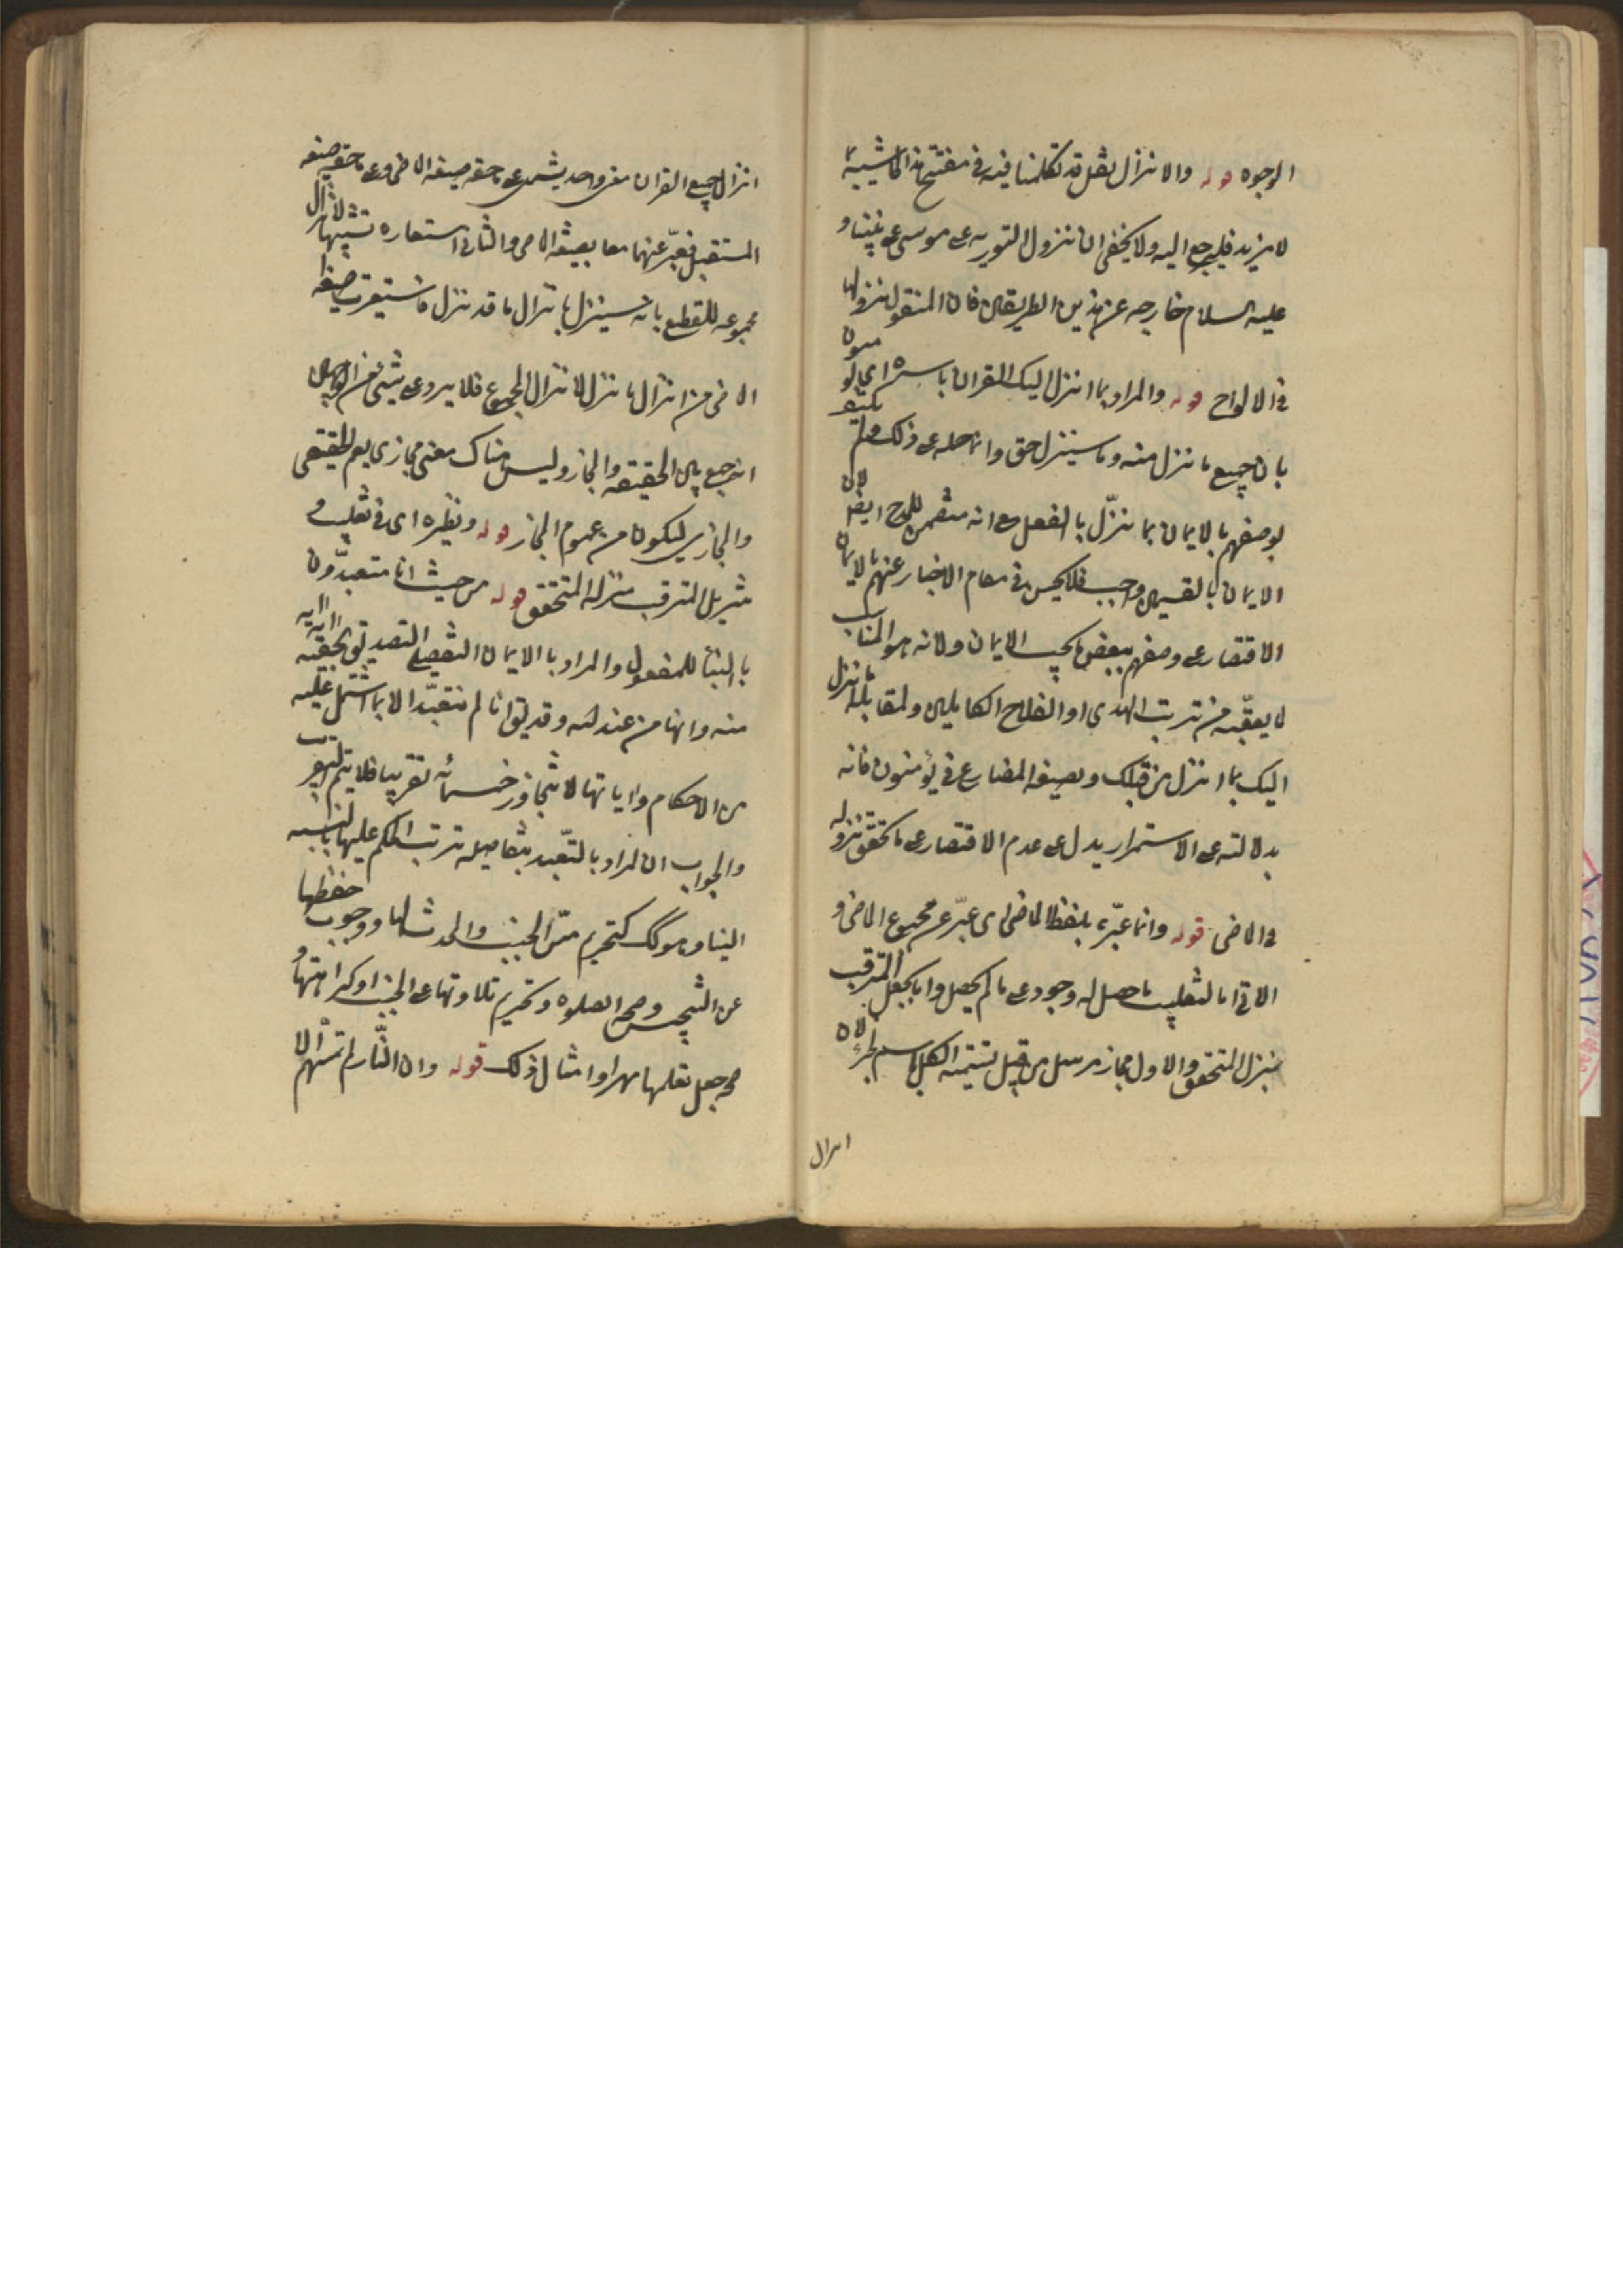 الوجوه قوله والانزال نقل قد تكلمنا فيه في مفتتح هذا الحاشية بما
لا مزيد فليرجع اليه ولا يخفى ان نزول التورية على موسى على نبينا و
عليه السلام خارجة عن هذين الطريقين فان المنقول نزولها
في الالواح قوله والمراد بما انزل اليك القرآن باسره اي يؤمنون
بان جميع ما نزل منه وما سينزل حق وانما حمله على ذلك ولم يكتف
بوصفهم بالايمان بما نزّل بالفعل مع انه متضمن للمدح ايضا لان
الايمان بالقسمين واجب فلا يحسن في مقام الاخبار عنهم بالايمان
الاقتصار على وصفهم ببعض ما يجب الايمان ولانه هو المناسب
لا يعقّبه من ترتب الهدى او الفلاح الكاملين ولمقابلة ما انزل
اليك بما انزل من قبلك وبصيغة المضارع في يؤمنون فانه
بدلالته على الاستمرار يدل على عدم الاقتصار على ما تحقق نزوله
في الماضي قوله وانما عبّر بلفظ الماضي اي عبّر عن مجموع الماضي و
الاتي اما لتغليب ما حصل له وجود على ما لم يحصل واما بجعل المترقب
بمنزلة المتحقق والاول مجاز مرسل من قبيل تسمية الكل باسم الجزء لان
انزال
انزال جميع القران معنى واحد يشمل على ما حقه صيغة الماضي وعلى ما حقه صيغة
المستقبل فعبّر عنهما معا بصيغة الماضي والثاني استعارة تشبيها لانزال
مجموعه للقطع بانه سينزل بانزال ما قد نزل فاستعيرت صيغة
الماضي من انزال ما نزل لانزال المجموع فلا يرد على شيء من الوجهين
انه جمع بين الحقيقة والمجاز وليس هناك معنى مجازي يعم الحقيقي
والمجازي ليكون من عموم المجاز قوله ونظيره اي في تغليب و
تنزيل المترقب منزلة المتحقق قوله من حيث انا متعبدّون
بالبناء للمفعول والمراد بالايمان التفصيلي التصديق بحقية اية اية
منه وانها من عند الله وقد يق انا لم نتعبّد الا بما اشتمل عليه
من الاحكام واياتها لا تتجاوز خمسمائة تقريبا فلا يتم التقريب
والجواب ان المراد بالتّعبد بتفاصيله ترتب الحكم عليها بالنسبة
الينا وهو كك كتحريم مسّ الجنب والمحدث لها ووجوب حفظها
عن التنجيس وصحة الصلوة وتحريم تلاوتها على الجنب او كراهتها و
صحة جعل تعلمها مهرا وامثال ذلك قوله وان النّار لم تمسّهم الا